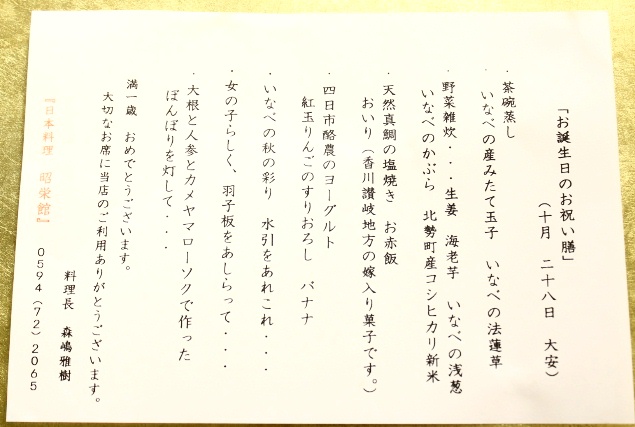 「お誕生日のお祝い膳」
（十月　二十八日　大安）
・茶碗蒸し
いなべの産みたて玉子　いなべの法蓮草
・野菜雑炊・・・生姜　海老芋　いなべの浅葱
いなべのかぶら　北勢町産コシヒカリ新米
・天然真鯛の塩焼き　お赤飯
おいり（香川讃岐地方の嫁入り菓子です。）
・四日市酪農のヨーグルト
紅玉りんごのすりおろし　バナナ
・いなべの秋の彩り　水引をあれこれ・・・
・女の子らしく、羽子板をあしらって・・・
・大根と人参とカメヤマローソクで作った
ぼんぼりを灯して・・・
満一歳　おめでとうございます。
大切なお席に当店のご利用ありがとうございます。
料理長　森嶋雅樹
『日本料理　昭栄館』　0594（72）2065